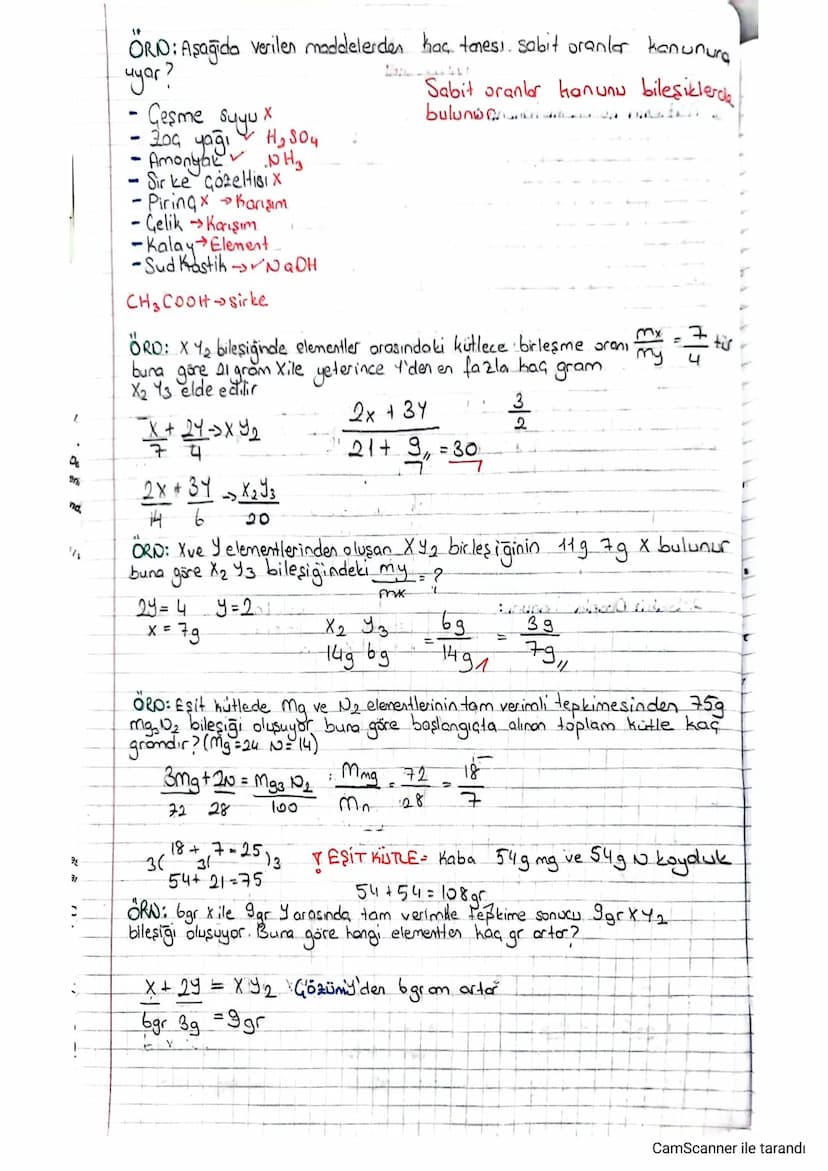 ÖRN: Aşağıda verilen maddelerden kaç tanesi sabit oranlar kanununa
uyar?
Sabit oranlar kanunu bileşiklerde
bulunur
- Çeşme suyu x
- Zaç yağı ✓ H₂SO₄
- Amonyak ✓ NH₃
- Sirke çözeltisi X
- Pirinç x → Karışım
- Çelik → Karışım
- Kalay → Element
- Sud Kostik → ✓ NaOH
CH₃COOH → sirke
ÖRN: XY₂ bileşiğinde elementler arasındaki kütlece birleşme oranı mx/my = 7/4 tür
buna göre 21 gram X ile yeterince Y'den en fazla kaç gram
X₂Y₃ elde edilir
X + 2Y → XY₂
7 4
2x + 3Y
21 + 9,, = 30
3/2
2X + 3Y → X₂Y₃
14 6 20
ÖRN: X ve Y elementlerinden oluşan XY₂ birleşiğinin 11g 7g X bulunur
buna göre X₂Y₃ bileşiğindeki my/mx = ?
2Y = 4 Y = 2
x = 7g
X₂ Y₃
14g 6g
= 6g/14g = 3g/7g,,
ÖRN: Eşit kütlede Mg ve N₂ elementlerinin tam verimli tepkimesinden 75g
Mg₃N₂ bileşiği oluşuyor buna göre başlangıçta alınan toplam kütle kaç
gramdır? (Mg=24 N=14)
3Mg + 2N = Mg₃N₂ : Mmg/Mn = 72/28 = 18/7
72 28 100
18 + 7 = 25
3( 3( )3
54 + 21 = 75
EŞİT KÜTLE = Kaba 54g mg ve 54g N koyduk
54 + 54 = 108gr
ÖRN: 6gr X ile 9gr Y arasında tam verimle tepkime sonucu 9gr XY₂
bileşiği oluşuyor. Buna göre hangi elementten kaç gr artar?
X + 2Y = XY₂ Çözüm: Y'den 6 gram artar
6gr 3g = 9gr
CamScanner ile tarandı